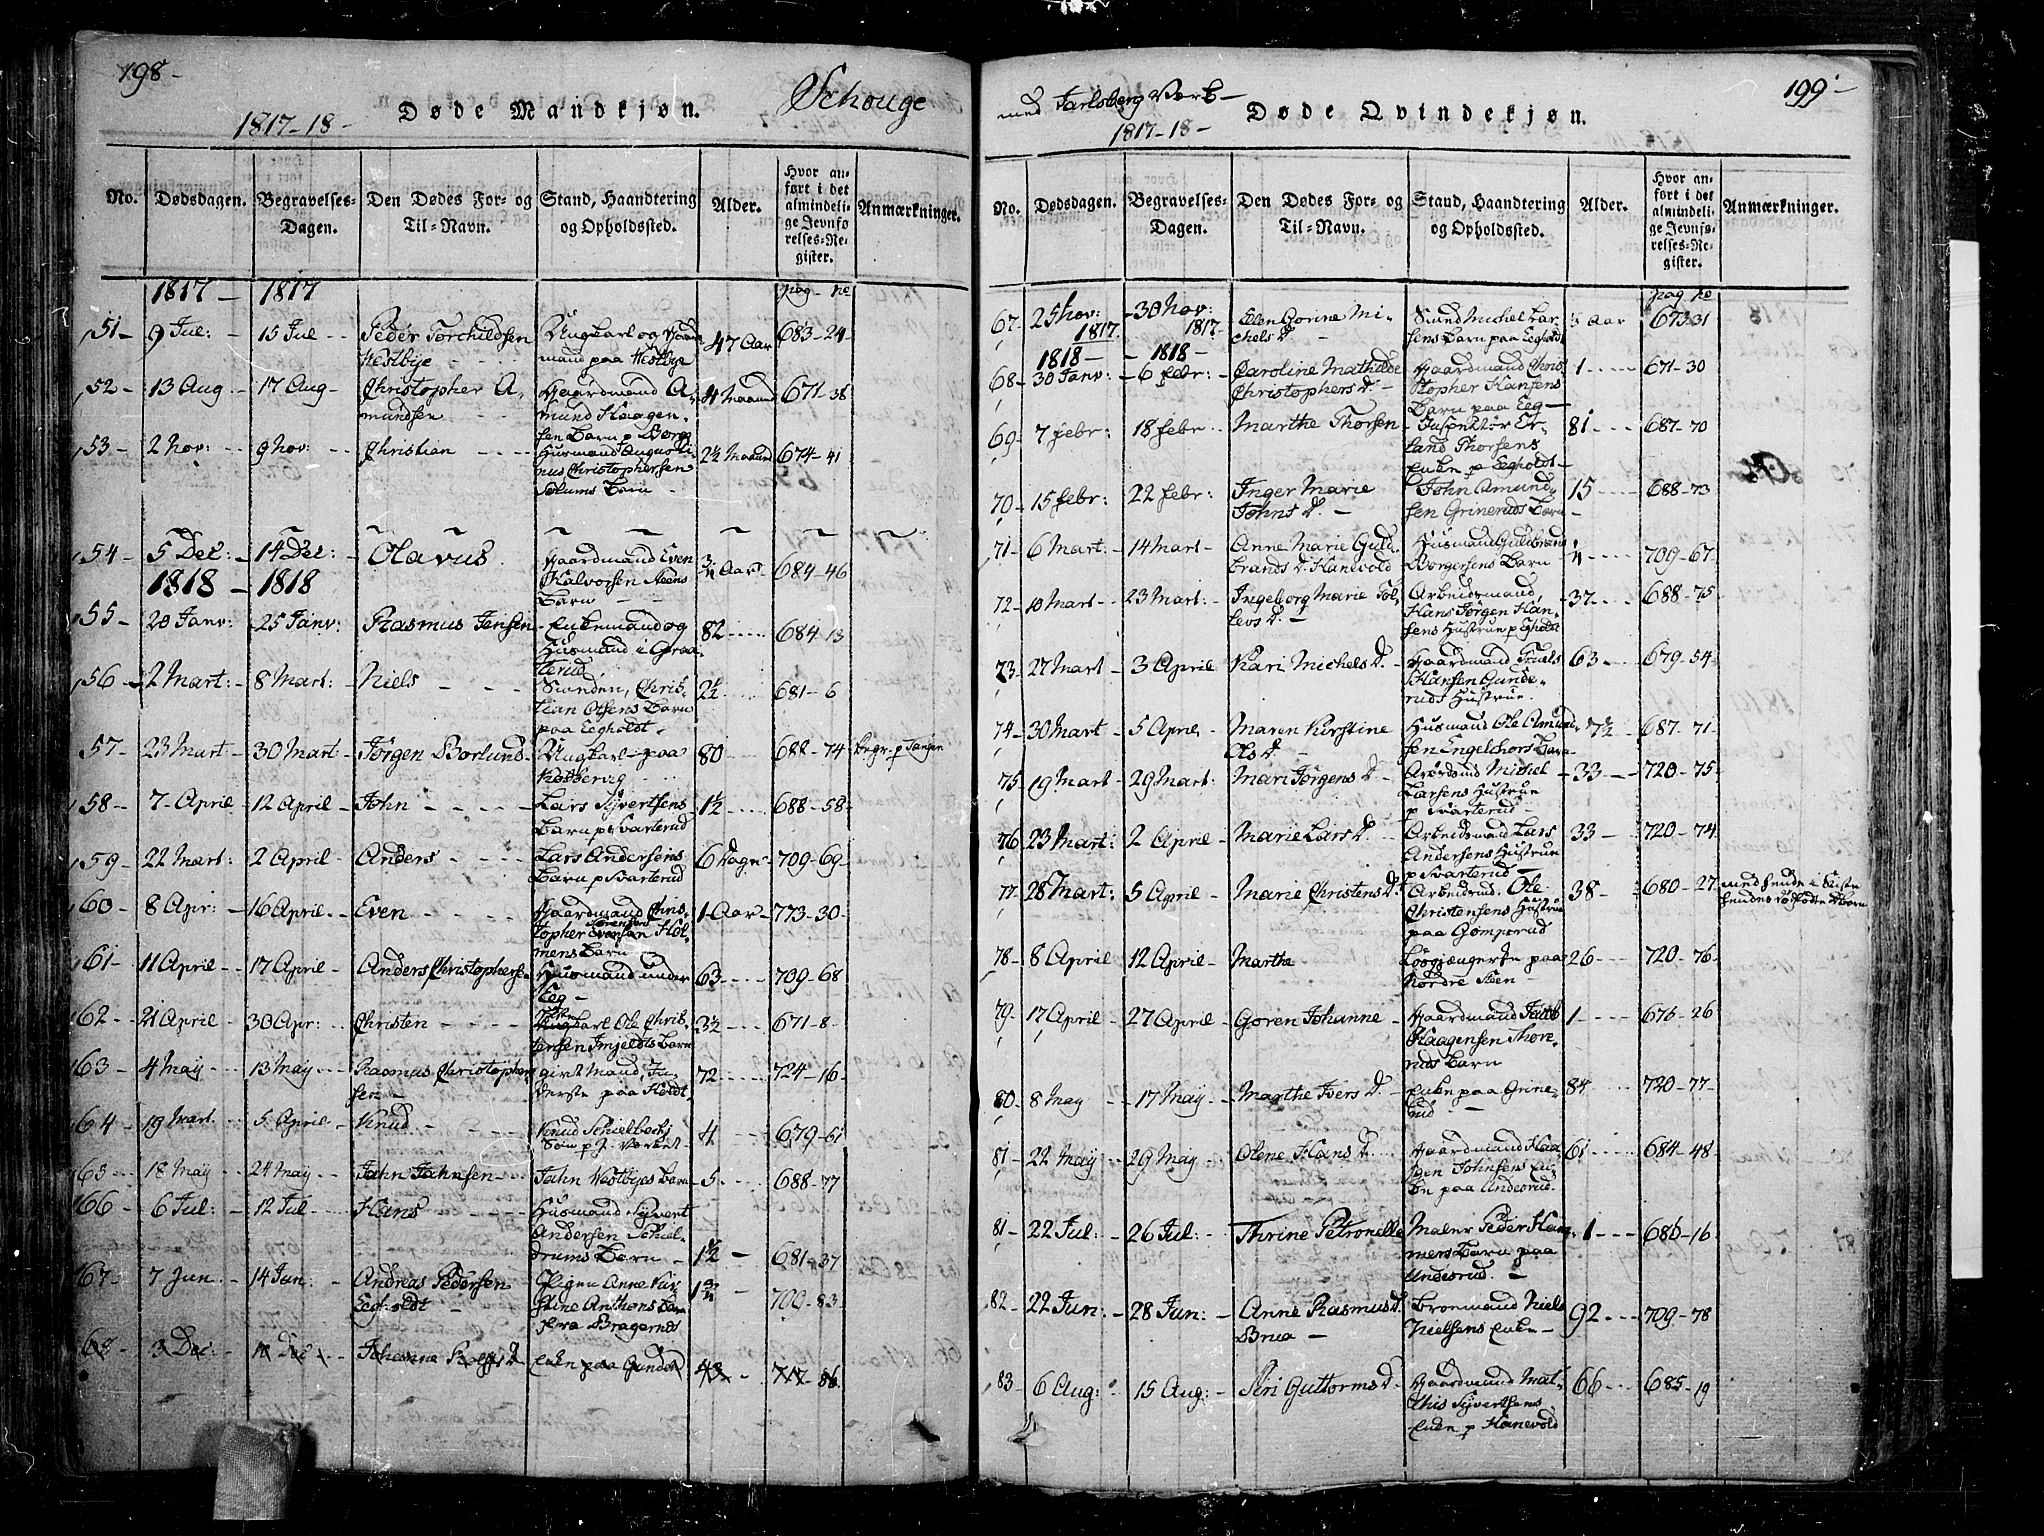 198-
Schouge
1817-18- Døde Mandkjøn.
No. Dødsdagen. Begravelses-Dagen. Den Dødes For- og Til-Navn. Stand, Haandtering og Opholdssted. Alder. Hvor anført i det almindelige Jevnførelses-Register. Anmærkninger.
1817 - 1817 pag - no
51- 9 Jul: - 15 Jul Peder Torchildsen Ungkarl og Gaard- 47 Aar 683-24
Hestbye - mand paa Hestbye
52- 13 Aug - 17 Aug- Christopher A- Gaardmand A- 4 Maaned 671-38
mundsen mund Haagen-
sen Barn p Borge
53- 2 Nov: - 9 Nov: - Christian - Husmand Augusti- 2½ Maaned 674-41
nus Christophersen
Solums Barn -
54- 5 Dec: - 14 Dec: - Olavus Gaardmand Even ¾ Aar 684-46
Halvorsen Steens
Barn -
1818 - 1818
55- 20 Janv: 25 Janv: Rasmus Jensen- Enkemand og 82 684-13
Husmand i Graa-
terud
56- 2 Mart: - 8 Mart: - Niels - Svenden, Chris- 2½ 681-6
tian Olsens Barn
paa Eegholdt -
57- 23 Mart - 30 Mart- Jørgen Borlund- Ungkarl paa 80 682-74 Begr. p Tangen
Kobbervig
58- 7 April - 12 April - John - Lars Syvertsens 1½ 688-58
Barn p Svarterud
59- 22 Mart: - 2 April - Anders - Lars Andersens 6 Dage 709-69
Barn p Svarterud
60- 8 Apr: - 16 April - Even - Gaardmand Chris- 1 Aar - 773-30
topher Sørensens Hol-
mens Barn
61- 11 April - 17 April - Anders Christophers- Husmand under 63 709-68
Eeg -
62- 21 April 30 Apr: - Christen - Ungkarl Ole Chris- 3½ 671-8
tensen Imjeldts Barn
63- 4 May - 13 May - Rasmus Christopher- givt Mand, In- 72 724-16
sen - derste paa Holdt
64- 19 Mart - 5 April - Knud - Knud Schielbecks 4 679-61
Søn p J. Værket
65- 18 May - 24 May - John Johnsen - John Westbyes Barn 5 688-77
66- 6 Jul: - 12 Jul - Hans - Husmand Syvert
Andersen Schiel-
drums Barn - 1½ - 681-37
67- 7 Jun - 14 Jun: - Andreas Pedersen Pigen Anne Kir- 700-83
Eegholdt - stine Anthons Barn
fra Bragernes
68 3 Dec: 10 Dec - Johanne D Enke paa 43 - 717-86
199-
med Jarlsberg Værk-
1817-18- Døde Qvindekjøn.
No. Dødsdagen. Begravelses-Dagen. Den Dødes For- og Til-Navn. Stand, Haandtering og Opholdssted. Alder. Hvor anført i det almindelige Jevnførelses-Register. Anmærkninger.
pag no
67- 25 Nov: 1817 - 30 Nov: 1817- Ellen Gorine Mi- Svend Michel Lar- 3 Aar 673 31
chels D. - sens Barn paa Eegholdt
1818 - 1818 -
68- 30 Janv: - 6 Febr: - Caroline Mathilde Gaardmand Chris- 1 671-30
Christophers D. - topher Hansens
Barn paa Eeg-
69- 7 Febr: 18 Febr - Marthe Thorsen - Inspektør Er- 81 687-70
land Thorsens
Enke p Eegholdt-
70- 15 Febr: 22 Febr: Inger Marie John Amund- 15 688-73
Johns D. - sen Grineruds Barn
71- 6 Mart: - 14 Mart - Anne Marie Guld- Husmand Guldbrand 4 709-67
brands D. Hanevold Borgersens Barn
72- 10 Mart - 23 Mart: - Ingeborg Marie Tol- Arbeidsmand, 37 688-75
levs D. - Hans Jørgen Han-
sens Hustrue p Egholdt
73- 27 Mart - 3 April Kari Michels D. - Gaardmand Truels 63 679-54
Hansen Gunde-
ruds Hustrue.
74- 30 Mart - 5 April - Maren Kirstine Husmand Ole Amund- 7½ - 687-71
Ols D. - sen Engelshors Barn
75- 19 Mart - 29 Mart: - Mari Jørgens D. - Michel 33 720-75
Larsens Hustrue
p Svarterud -
76- 23 Mart: - 2 April - Marie Lars D. Arbeidsmand Lars 33 720-74
Andersens Hustrue
p Svarterud -
77- 28 Mart: - 5 April - Marie Christens D. Ole 38 680-27
Christensens Hustrue
paa Gomperud
78- 8 April 12 April - Marthe Løsgjængerske paa 26 720-76
Nordre Steen
79- 17 April - 27 April - Goren Johanne - Gaardmand Jacob 1 676-26
Haagensen Thor-
ruds Barn
80- 8 May - 17 May - Marthe Ivers D. - Enke paa Grine- 84 720-77
rud -
81- 22 May - 29 May - Olene Hans D. Gaardmand Haa- 61 684-48
gen Johnsens En-
ke paa Underud.
81- 22 Jul: - 26 Jul: - Thrine Petronelle Maler Peder Ham- 1 686-16
mers Barn paa
Underud. -
82- 22 Jun: - 28 Jun: - Anne Rasmus D. Niels 92 709-78
Brua - Nielsens Enke -
83- 6 Aug: - 15 Aug: - Siri Guttorms D. - Gaardmand Mat- 66 685-19
this Syvertsens
Enke p Hanevold